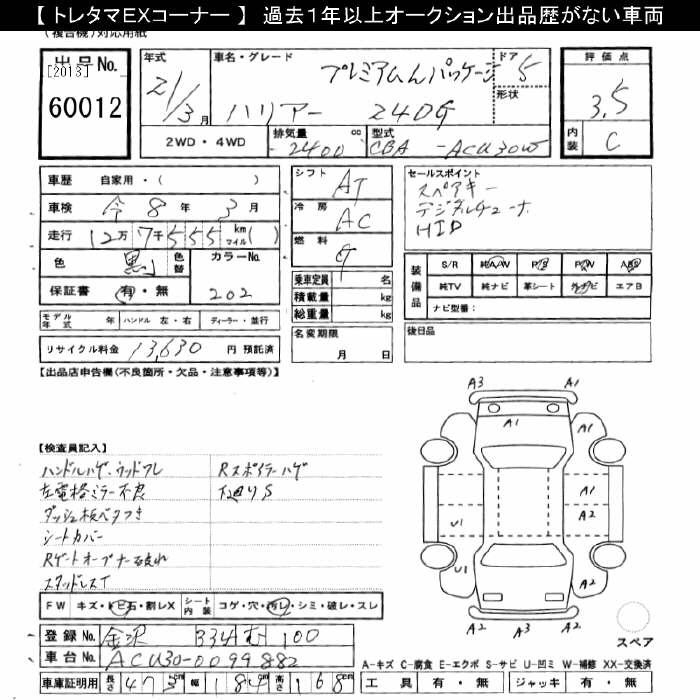 【 トレタマEXコーナー 】 過去１年以上オークション出品歴がない車両
(複合機)対応用紙
出品No.
[2013]
60012
年式
21/3月
車名・グレード
プレミアムLパッケージ
ハリアー 240G
ドア 5
形状
評価点
3.5
内装 C
2WD・4WD
排気量 2400 cc
型式 CBA -ACU30W
車歴 自家用・( )
車検 令 8 年 3 月
走行 12万7千555 km マイル( )
色 黒 色替
カラーNo. 202
保証書 有・無
シフト AT
冷房 AC
燃料 G
乗車定員 名
積載量 kg
総重量 kg
セールスポイント
スペアキー
デジタルチューナ
HID
装備品
S/R 純A/W P/S P/W ABS
純TV 純ナビ 革シート 外ナビ エアB
ナビ型番:
モデル年式 年 ハンドル 左・右 ディーラー・並行
名変期限
月 日
後日品
リサイクル料金 13,630 円 預託済
【出品店申告欄(不良箇所・欠品・注意事項等)】
【検査員記入】
ハンドルハゲ・ウッドワレ
左電格ミラー不良
ダッシュ板ベタつき
シートカバー
Rゲートオープナー破れ
スタッドレスT
Rスポイラーハゲ
下廻りS
A3 A1
A1
A1
A2
U1
U1
A2
A2 A3 A2
スペア
FW キズ・トビ石・割レX シート内装 コゲ・穴・汚レ・シミ・破レ・スレ
登録No. 金沢 334 む 100
車台No. ACU30-0099882
車庫証明用 長さ 473cm 幅 184cm 高さ 168cm
A-キズ C-腐食 E-エクボ S-サビ U-凹ミ W-補修 XX-交換済
工具 有・無 ジャッキ 有・無